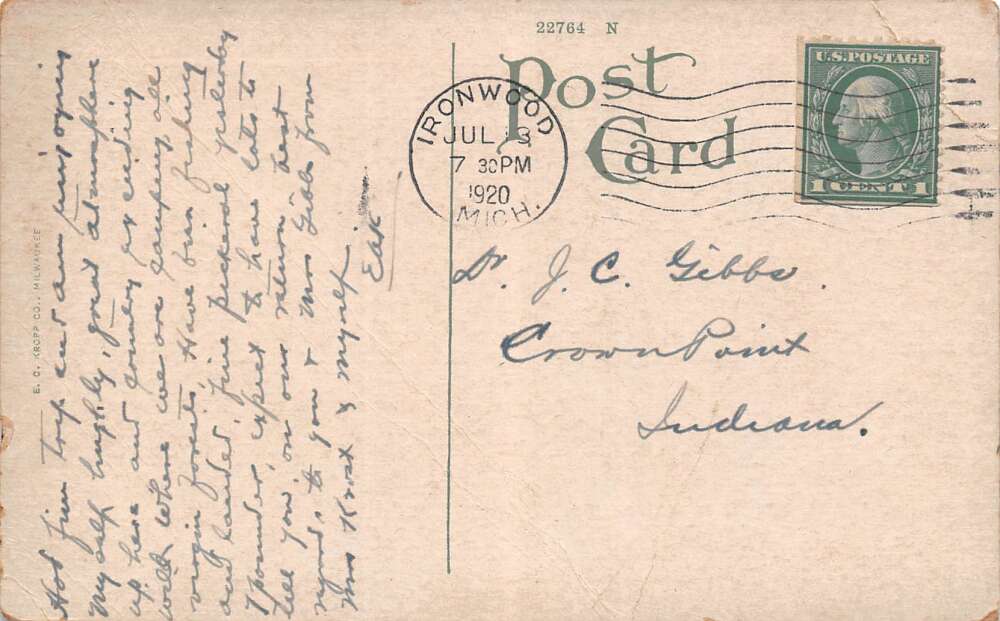 22764 N
Post
Card
U.S. POSTAGE
1 CENT 1
IRONWOOD
JUL 13
7 30 PM
1920
MICH.
Dr. J. C. Gibbs.
Crown Point
Indiana.
Had fine trip and am enjoying
myself hugely, great atmosphere
up here and country is exciding
wild where we are camping all
virgin forests, Have bin fishing
and landed, fine pickerel yesterday
7 pounder, expect to have lots to
tell you, on our return, best
regards to you & Mrs Gibbs from
Mrs Krost & myself.
E. C. KROPP CO., MILWAUKEE